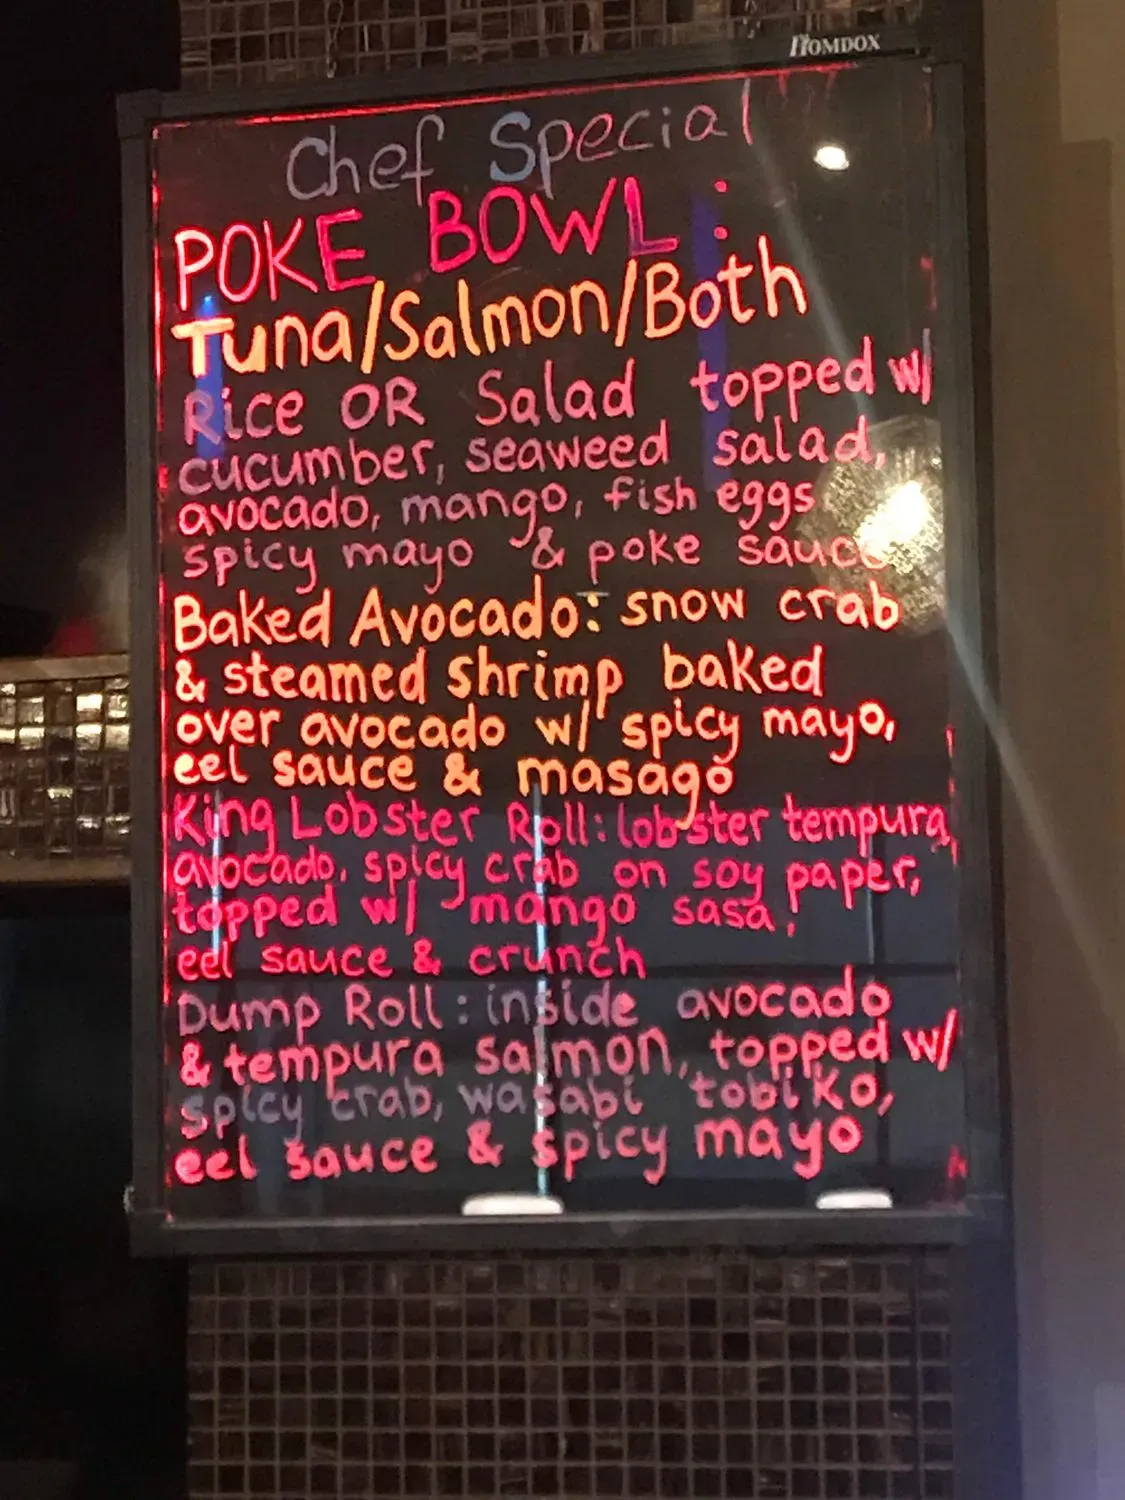 HOMDOX
Chef Special
POKE BOWL:
Tuna/Salmon/Both
Rice OR Salad topped w/
cucumber, seaweed salad,
avocado, mango, fish eggs
spicy mayo & poke sauce
Baked Avocado: snow crab
& steamed shrimp baked
over avocado w/ spicy mayo,
eel sauce & masago
King Lobster Roll: lobster tempura,
avocado, spicy crab on soy paper,
topped w/ mango sasa,
eel sauce & crunch
Dump Roll: inside avocado
& tempura salmon, topped w/
spicy crab, wasabi tobiko,
eel sauce & spicy mayo